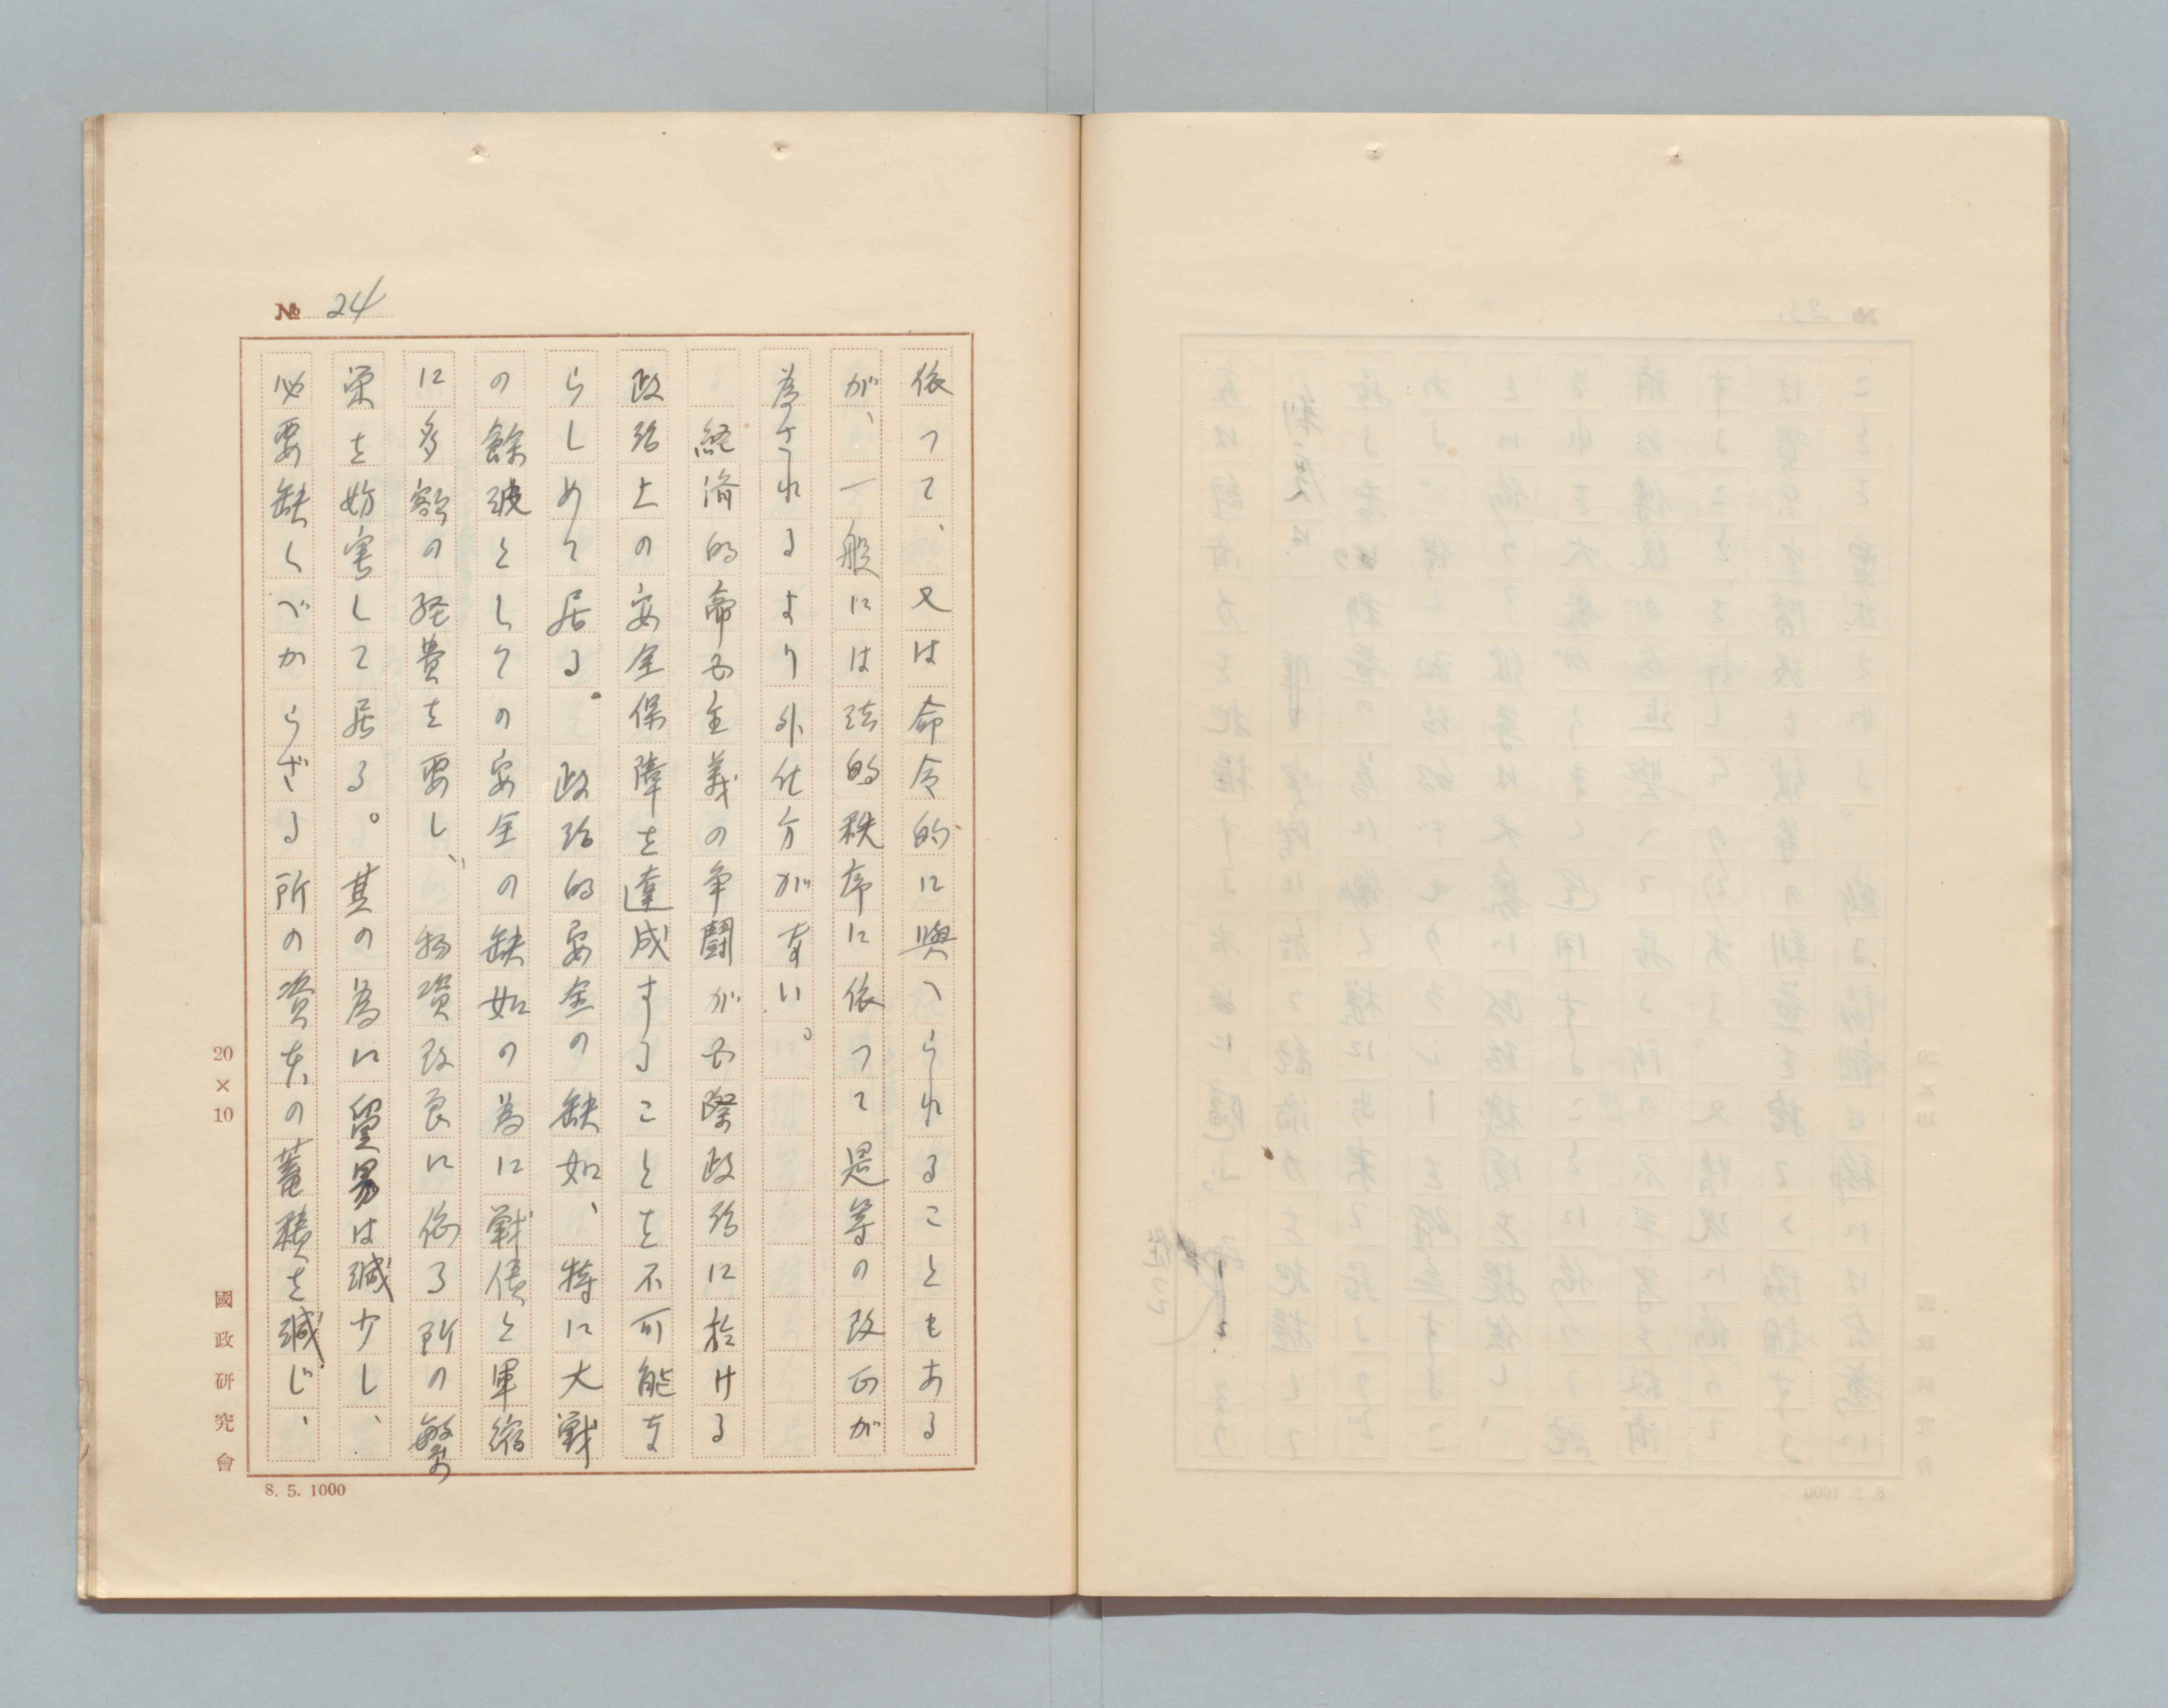 № 24
依つて、又は命令的に與へられることもある
が、一般には法的秩序に依つて是等の改正が
為されるより外仕方がない。
経済的帝国主義の争闘が国際政治に於ける
政治上の安全保障を達成することを不可能な
らしめて居る。政治的安全の缺如、特に大戦
の餘波としての安全の缺如の為に戦債と軍縮
に多額の経費を要し、物資改良に依る所の繁
栄を妨害して居る。其の為に貿易は減少し、
必要缺くべからざる所の資本の蓄積を減じ、
20×10
國政研究會
8. 5. 1000